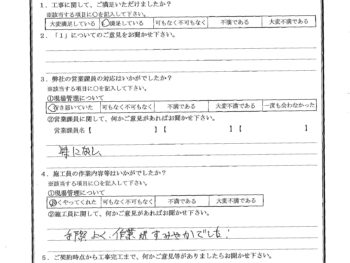 1．工事に関して、ご満足いただけましたか？
※該当する項目に○を記入して下さい。
大変満足している 満足している 可もなく不可もなく 不満である 大変不満である
2．「1」についてのご意見をお聞かせ下さい。
3．弊社の営業課員の対応はいかがでしたか？
※該当する項目に○を記入して下さい。
①現場管理について
可もなく不可もなく 不満である 大変不満である 一度も会わなかった
②営業課員に関して、何かご意見があればお聞かせ下さい。
営業課員名【 】【 】
特になし
4．施工員の作業内容等はいかがでしたか？
※該当する項目に○を記入して下さい。
①現場管理について
良くやってくれた 可もなく不可もなく 不満である 大変不満である
②施工員に関して、何かご意見があればお聞かせ下さい。
手際よく、作業がすみやかでした！
5．ご契約時点から工事完工まで、何かご意見等がありましたらお聞かせ下さい。